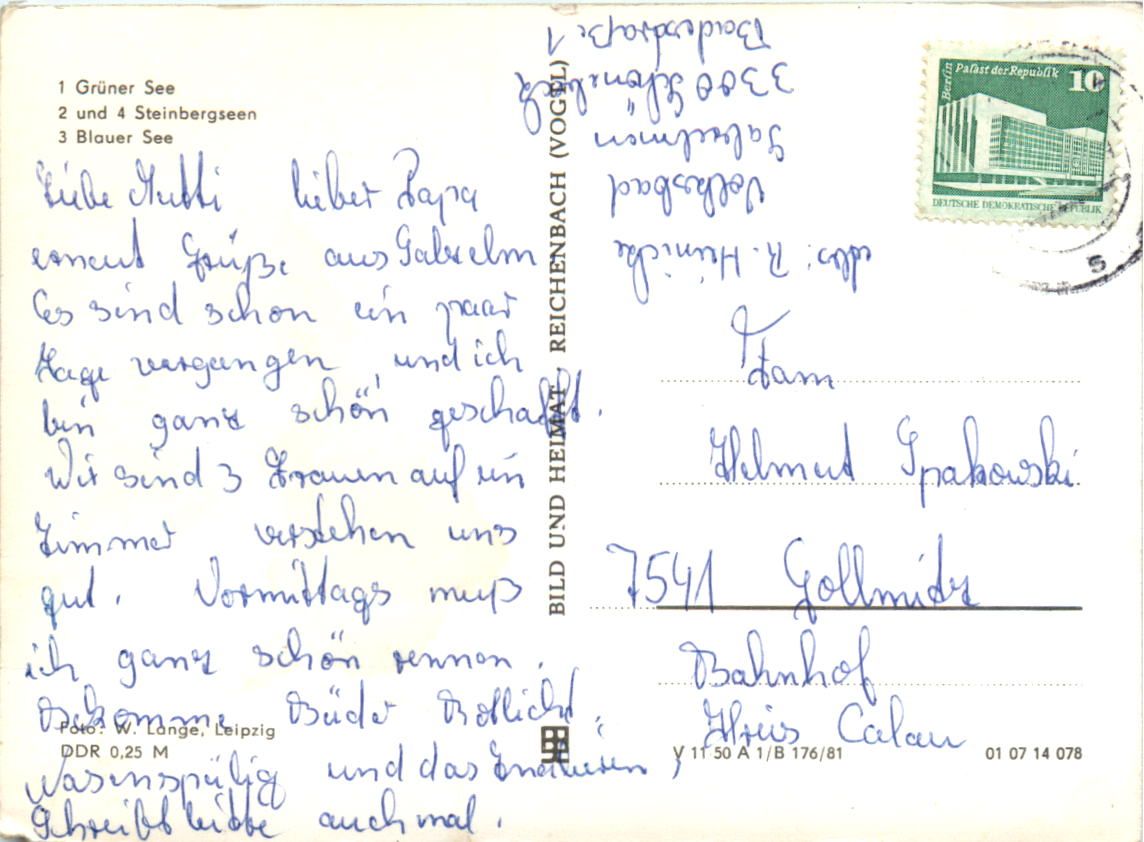 1 Grüner See
2 und 4 Steinbergseen
3 Blauer See
Liebe Mutti lieber Papa
erneut Grüße aus Salzelm
Es sind schon ein paar
Tage vergangen, und ich
bin ganz schön geschafft.
Wir sind 3 Frauen auf ein
Zimmer verstehen uns
gut. Vormittags muß
ich ganz schön rennen.
Bekomme Bäder Rotlicht,
Nasenspülig und das
Schreibt bitte auch mal.
Foto: W. Lange, Leipzig
DDR 0,25 M
BILD UND HEIMAT REICHENBACH (VOGTL)
abs: R. Heinicke
Volksbad
Salzelmen
3300 Schönebeck
Badestraße 1
Berlin Palast der Republik 10
DEUTSCHE DEMOKRATISCHE REPUBLIK
s
Fam
Helmut Spakowski
7541 Gollmitz
Bahnhof
Kreis Calau
V 11 50 A 1/B 176/81
01 07 14 078